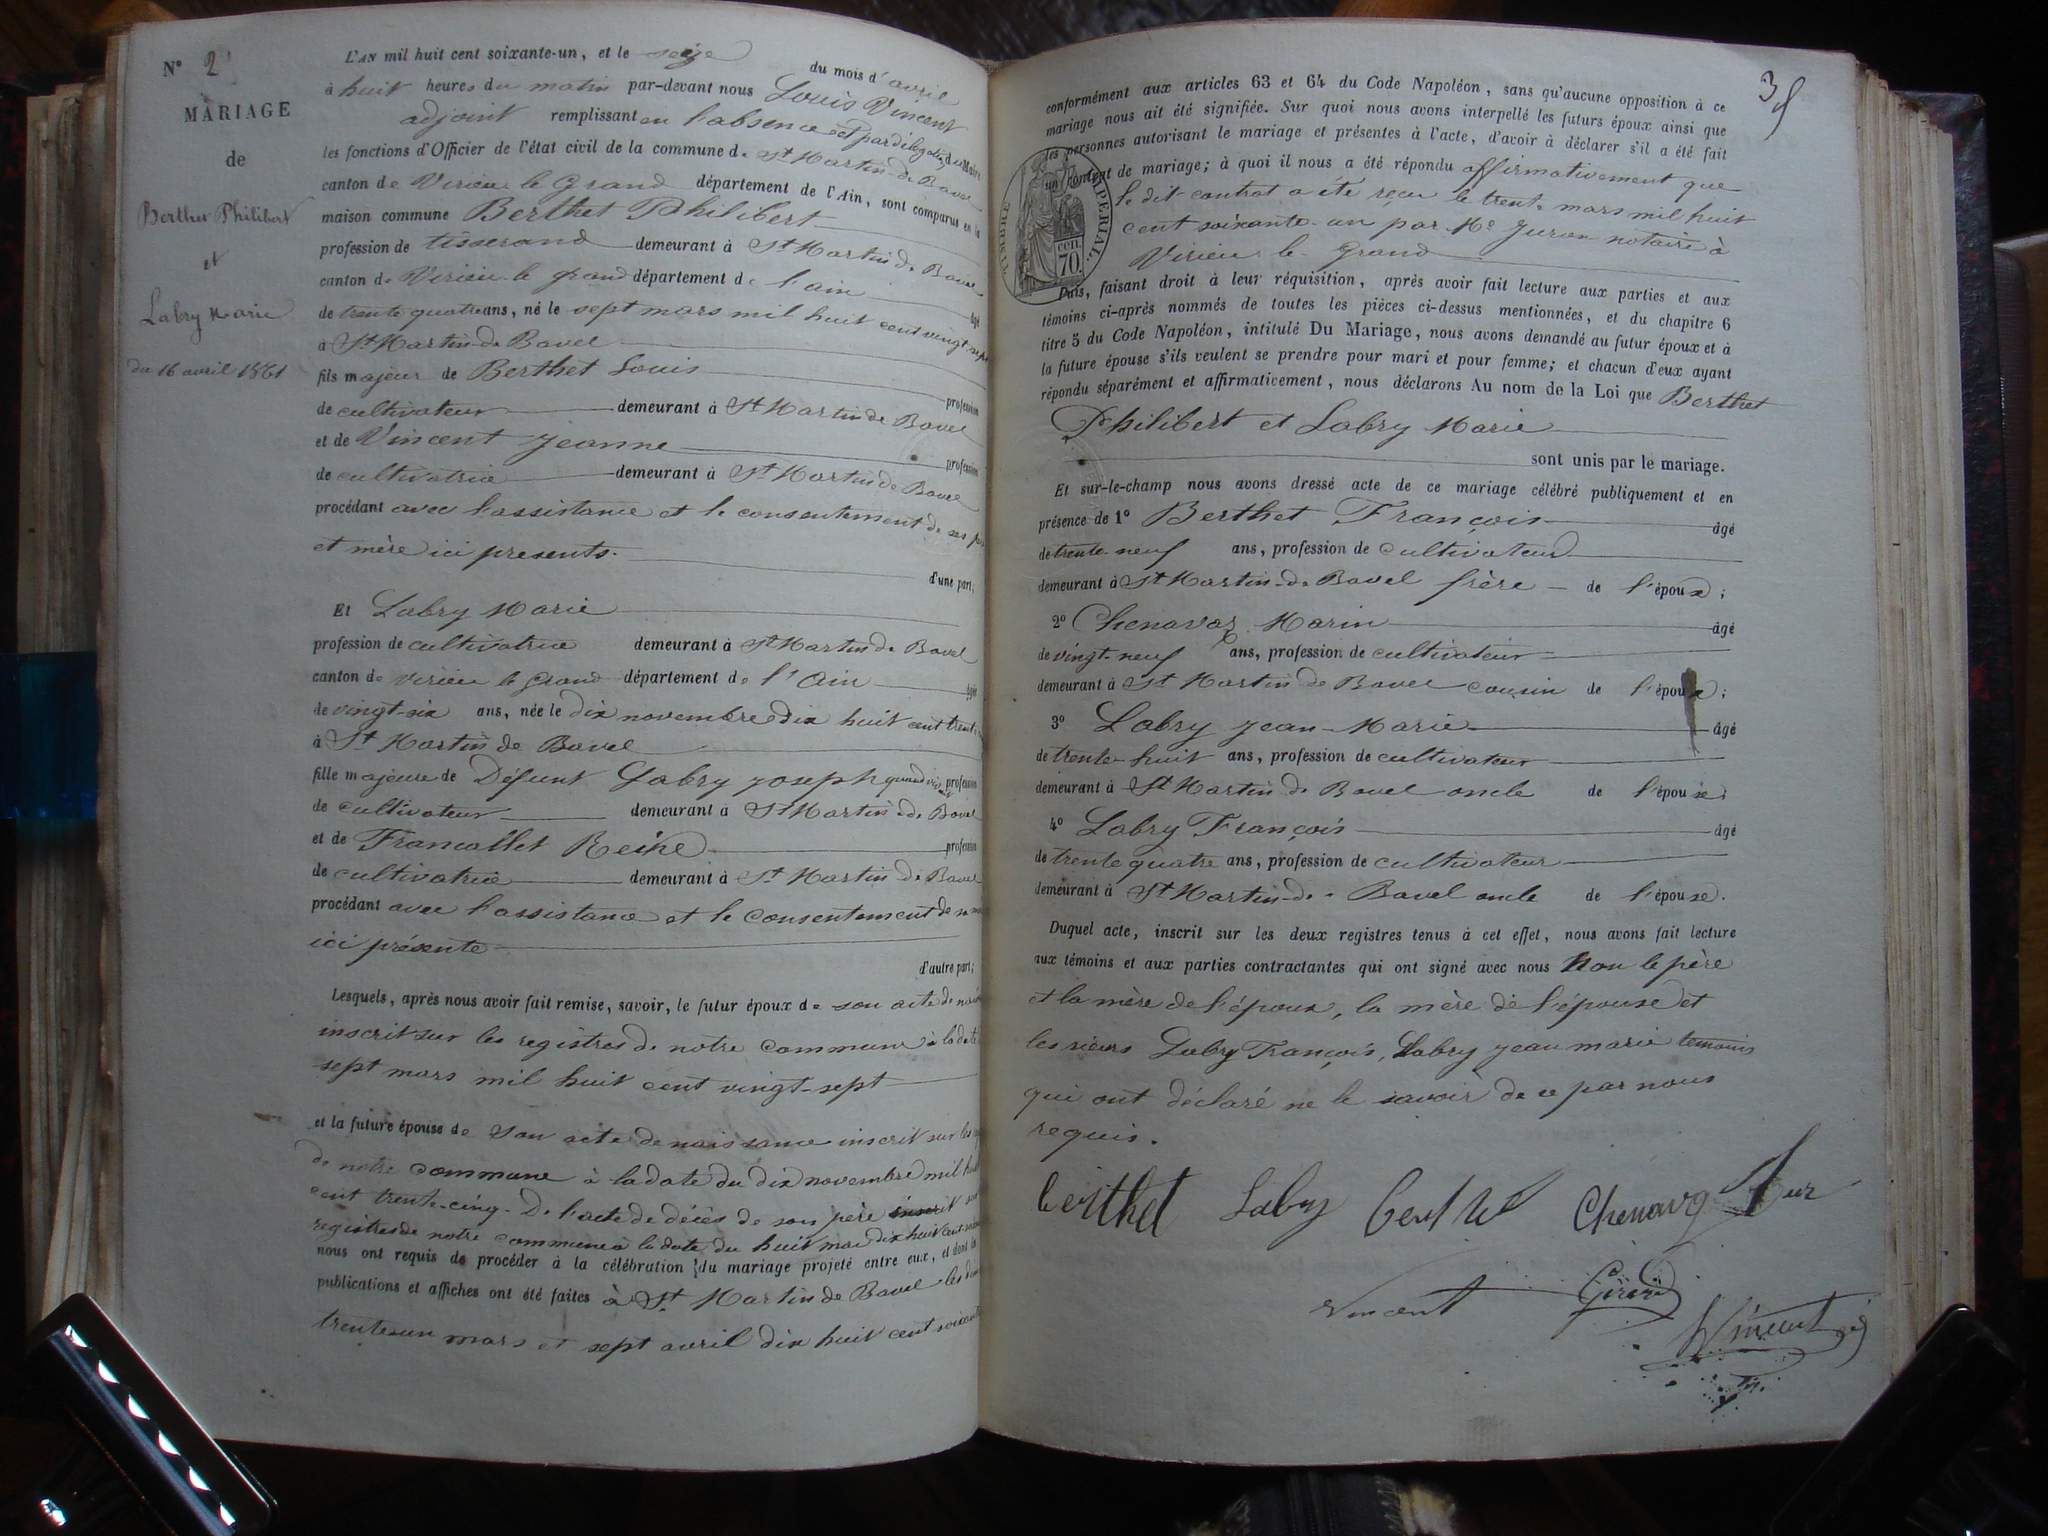 N° 2
MARIAGE
de
Berthet Philibert
et
Labry Marie
du 16 avril 1861
L'AN mil huit cent soixante-un, et le seize du mois d'avril
à huit heures du matin par-devant nous Louis Vincent
adjoint remplissant en l'absence et par délégation du Maire
les fonctions d'Officier de l'état civil de la commune de St Martin de Bavel
canton de Virieu le Grand département de l'Ain, sont comparus en la
maison commune Berthet Philibert
profession de tisserand demeurant à St Martin de Bavel
canton de Virieu le grand département de l'ain âgé
de trente quatre ans, né le sept mars mil huit cent vingt-sept
à St Martin de Bavel
fils majeur de Berthet Louis profession
de cultivateur demeurant à St Martin de Bavel
et de Vincent Jeanne profession
de cultivatrice demeurant à St Martin de Bavel
procédant avec l'assistance et le consentement de ses père
et mère ici presents. d'une part;
Et Labry Marie
profession de cultivatrice demeurant à St Martin de Bavel
canton de virieu le Grand département de l'Ain âgée
de vingt-six ans, née le dix novembre dix huit cent trente
à St Martin de Bavel
fille majeure de Défunt Labry Joseph quand vivait profession
de cultivateur demeurant à St Martin de Bavel
et de Francallet Reine profession
de cultivatrice demeurant à St Martin de Bavel
procédant avec l'assistance et le consentement de sa mère
ici présente
d'autre part;
Lesquels, après nous avoir fait remise, savoir, le futur époux de son acte de nais
inscrit sur les registres de notre commune à la date
sept mars mil huit cent vingt-sept
et la future épouse de son acte de naissance inscrit sur les
de notre commune à la date du dix novembre mil huit
cent trente-cinq. De l'acte de décès de son père inscrit sur
registres de notre commune à la date du huit mai dix huit cent
nous ont requis de procéder à la célébration du mariage projeté entre eux, et dont les
publications et affiches ont été faites à St Martin de Bavel les
trente un mars et sept avril dix huit cent soixante
3
conformément aux articles 63 et 64 du Code Napoléon, sans qu'aucune opposition à ce
mariage nous ait été signifiée. Sur quoi nous avons interpellé les futurs époux ainsi que
les personnes autorisant le mariage et présentes à l'acte, d'avoir à déclarer s'il a été fait
un contrat de mariage; à quoi il nous a été répondu affirmativement que
le dit contrat a été reçu le trente mars mil huit
cent soixante-un par Me Juron notaire à
Virieu le Grand
TIMBRE IMPÉRIAL
cen.
70.
Puis, faisant droit à leur réquisition, après avoir fait lecture aux parties et aux
témoins ci-après nommés de toutes les pièces ci-dessus mentionnées, et du chapitre 6
titre 5 du Code Napoléon, intitulé Du Mariage, nous avons demandé au futur époux et à
la future épouse s'ils veulent se prendre pour mari et pour femme; et chacun d'eux ayant
répondu séparément et affirmativement, nous déclarons Au nom de la Loi que Berthet
Philibert et Labry Marie
sont unis par le mariage.
Et sur-le-champ nous avons dressé acte de ce mariage célébré publiquement et en
présence de 1° Berthet François âgé
de trente-neuf ans, profession de cultivateur
demeurant à St Martin-de Bavel frère de l'époux;
2° Chenavaz Marin âgé
de vingt-neuf ans, profession de cultivateur
demeurant à St Martin de Bavel cousin de l'époux;
3° Labry Jean-Marie âgé
de trente-huit ans, profession de cultivateur
demeurant à St Martin de Bavel oncle de l'épouse;
4° Labry François âgé
de trente quatre ans, profession de cultivateur
demeurant à St Martin-de-Bavel oncle de l'épouse.
Duquel acte, inscrit sur les deux registres tenus à cet effet, nous avons fait lecture
aux témoins et aux parties contractantes qui ont signé avec nous Non le père
et la mère de l'époux, la mère de l'épouse et
les sieurs Labry François, Labry Jean marie temoins
qui ont déclaré ne le savoir de ce par nous
requis.
Berthet Labry Berthet Chenavaz
Vincent Girard
Vincent